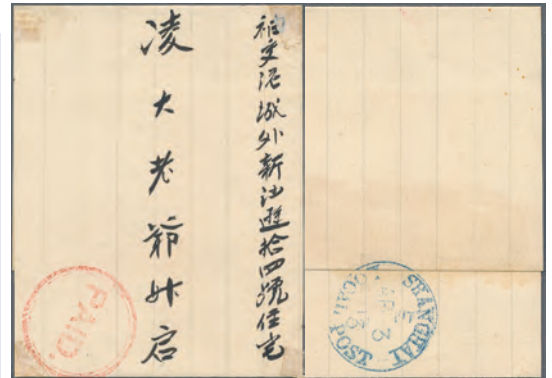 交泥城外新沙遜拾四號住宅
凌大老爺升启
PAID.
SHANGHAI
LOCAL POST
E
APR
3